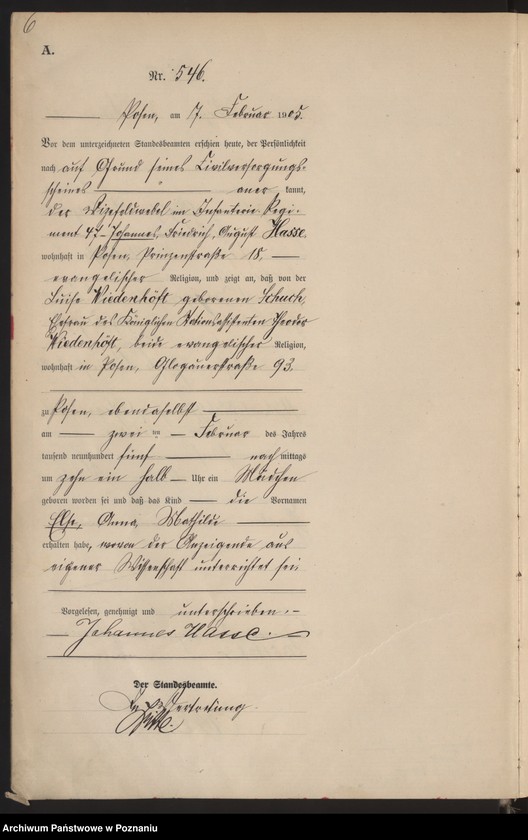 6
A.
Nr. 546.
Posen, am 7. Februar 1905.
Vor dem unterzeichneten Standesbeamten erschien heute, der Persönlichkeit
nach auf Grund seines Civilversorgungs-
scheines anerkannt,
der Vizefeldwebel im Infanterie-Regi-
ment 47 Johannes, Friedrich, August Hasse,
wohnhaft in Posen, Prinzenstraße 18,
evangelischer Religion, und zeigt an, daß von der
Luise Wiedenhöft geborenen Schach,
Ehefrau des Königlichen Stationsassistenten Theodor
Wiedenhöft, beide evangelischer Religion,
wohnhaft in Posen, Glogauerstraße 93.
zu Posen, ebendaselbst
am zweiten Februar des Jahres
tausend neunhundert fünf nachmittags
um zehn ein halb Uhr ein Mädchen
geboren worden sei und daß das Kind die Vornamen
Else, Anna, Mathilde
erhalten habe, wovon der Anzeigende aus
eigener Wissenschaft unterrichtet sei.
Vorgelesen, genehmigt und unterschrieben.
Johannes Hasse.
Der Standesbeamte.
In Vertretung.
Archiwum Państwowe w Poznaniu